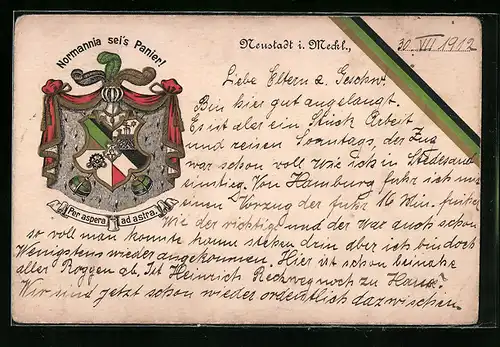 Normannia sei's Panier!
Neustadt i. Meckl., 30 VII 1912
Liebe Eltern u. Geschw.
Bin hier gut angelangt.
Es ist aber ein Stück Arbeit
und reisen Sonntags, der Zug
war schon voll wie ich in
einstieg. Von Hamburg fuhr ich mit
einen Vorzug der fuhr 16 Min. früher
Wie der richtige und der war auch schon
so voll man konnte kaum stehen drin aber ich bin doch
Wenigstens wieder angekommen. Hier ist schon beinahe
aller Roggen ab. Ist Heinrich noch zu Hause?
Wir sind jetzt schon wieder ordentlich dazwischen.
Per aspera ad astra.